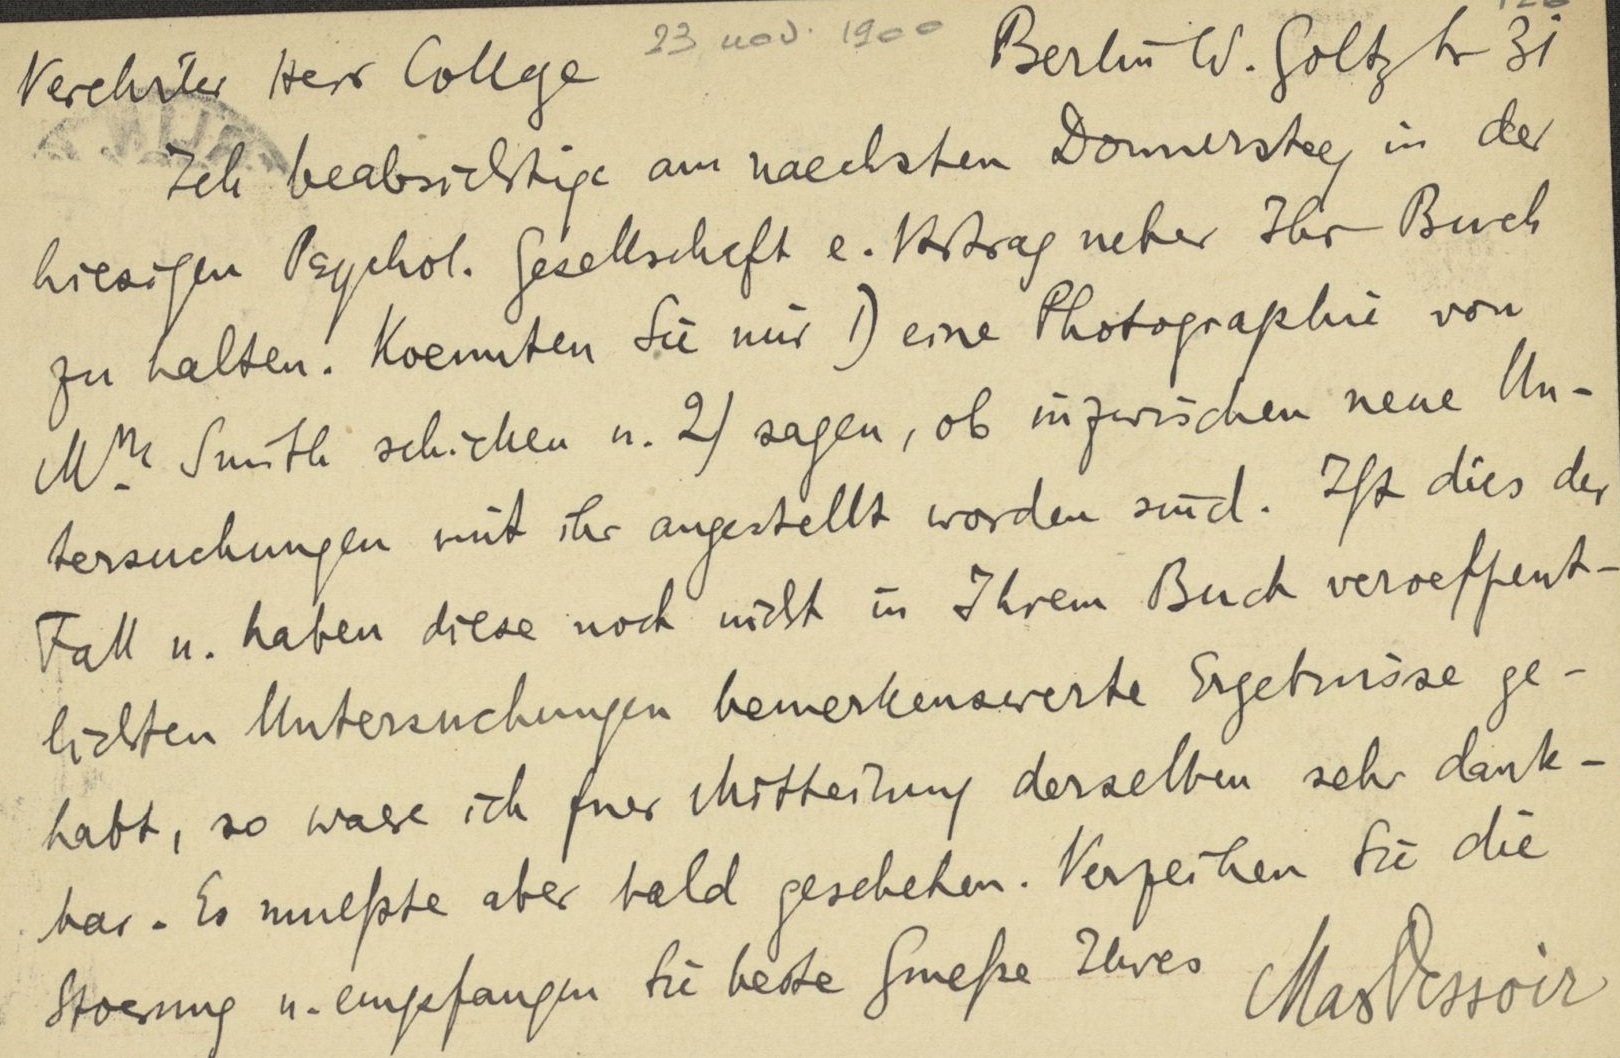 23 nov. 1900
Berlin W. Goltzstr 31
Verehrter Herr College
Ich beabsichtige am naechsten Donnerstag in der
hiesigen Psychol. Gesellschaft e. Vortrag ueber Ihr Buch
zu halten. Koennten Sie mir 1) eine Photographie von
Mlle Smith schicken u. 2) sagen, ob inzwischen neue Un-
tersuchungen mit ihr angestellt worden sind. Ist dies der
Fall u. haben diese noch nicht in Ihrem Buch veroeffent-
lichten Untersuchungen bemerkenswerte Ergebnisse ge-
habt, so waere ich fuer Mitteilung derselben sehr dank-
bar. Es mueßte aber bald geschehen. Verzeihen Sie die
Stoerung u. empfangen Sie beste Grueße Ihres
Max Dessoir